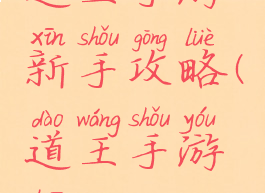 xīn shǒu gōng lüè
新手攻略(
dào wáng shǒu yóu
道王手游